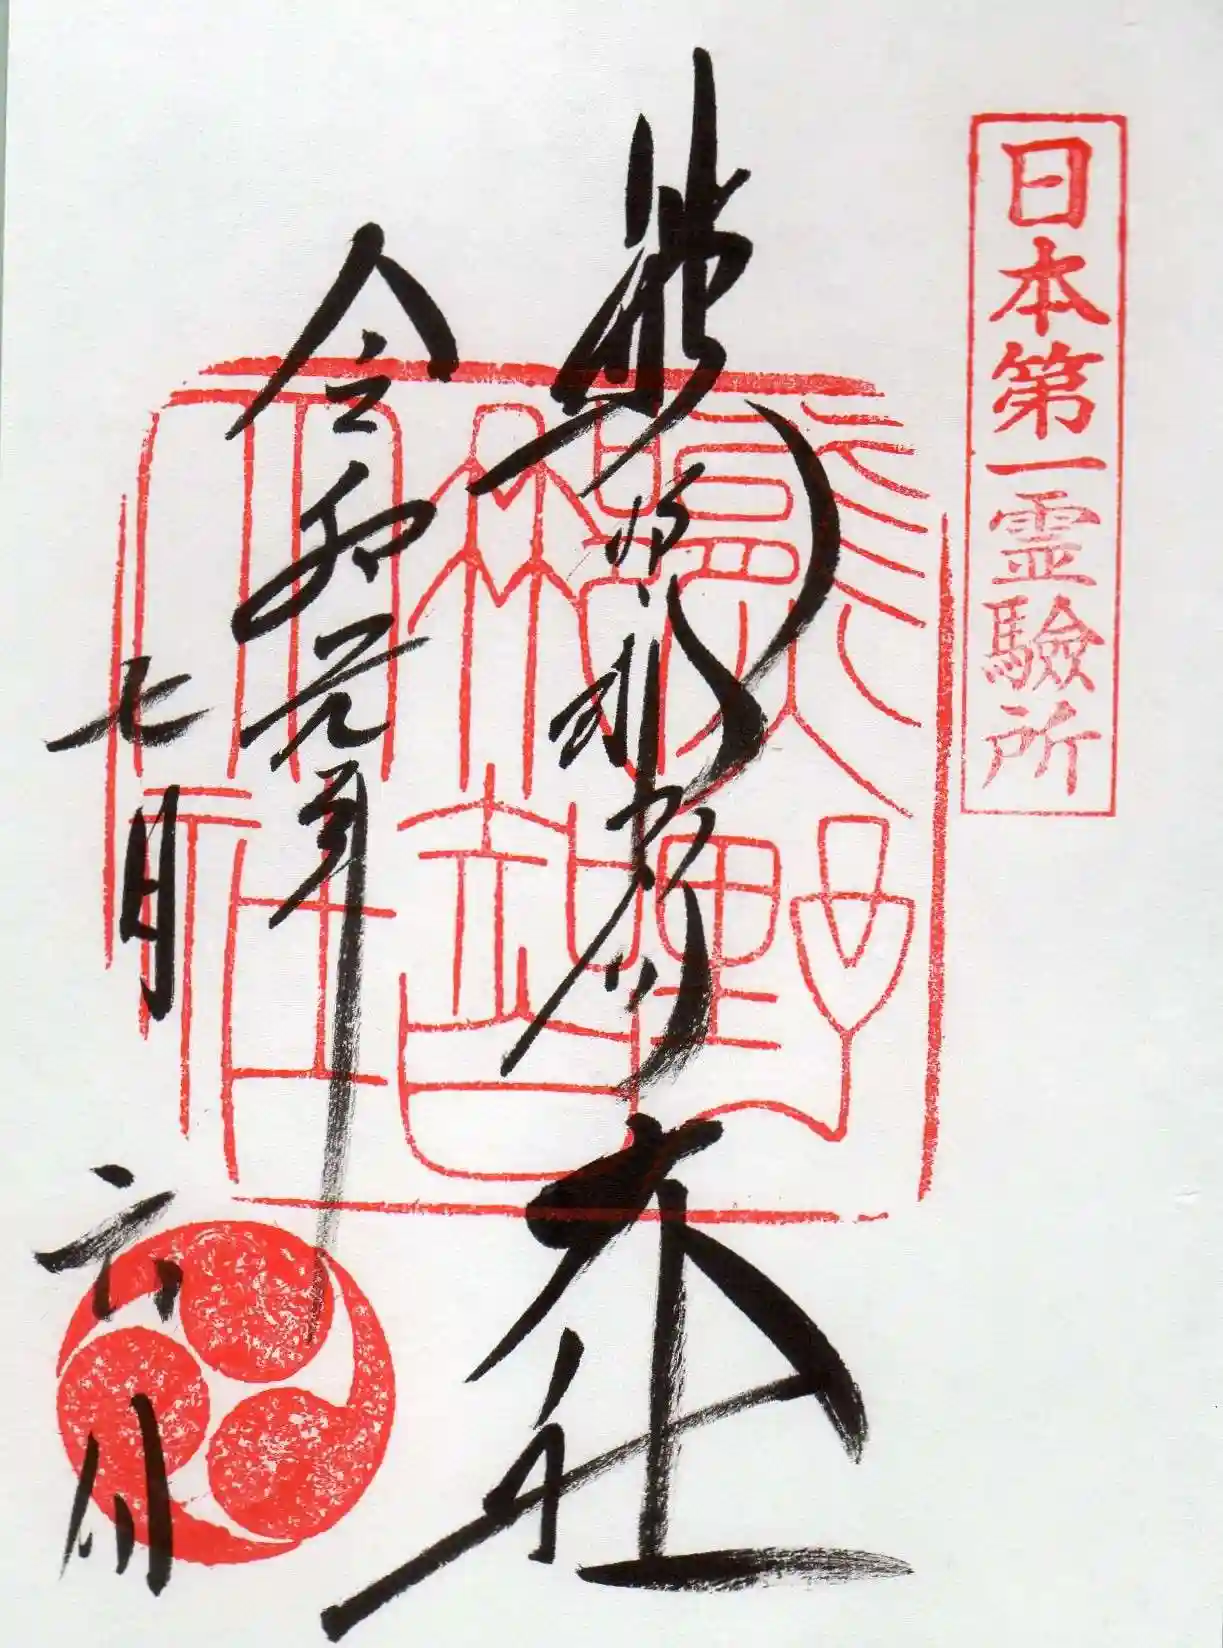 日本第一霊験所
熊野那智大社
令和元年
七月六日